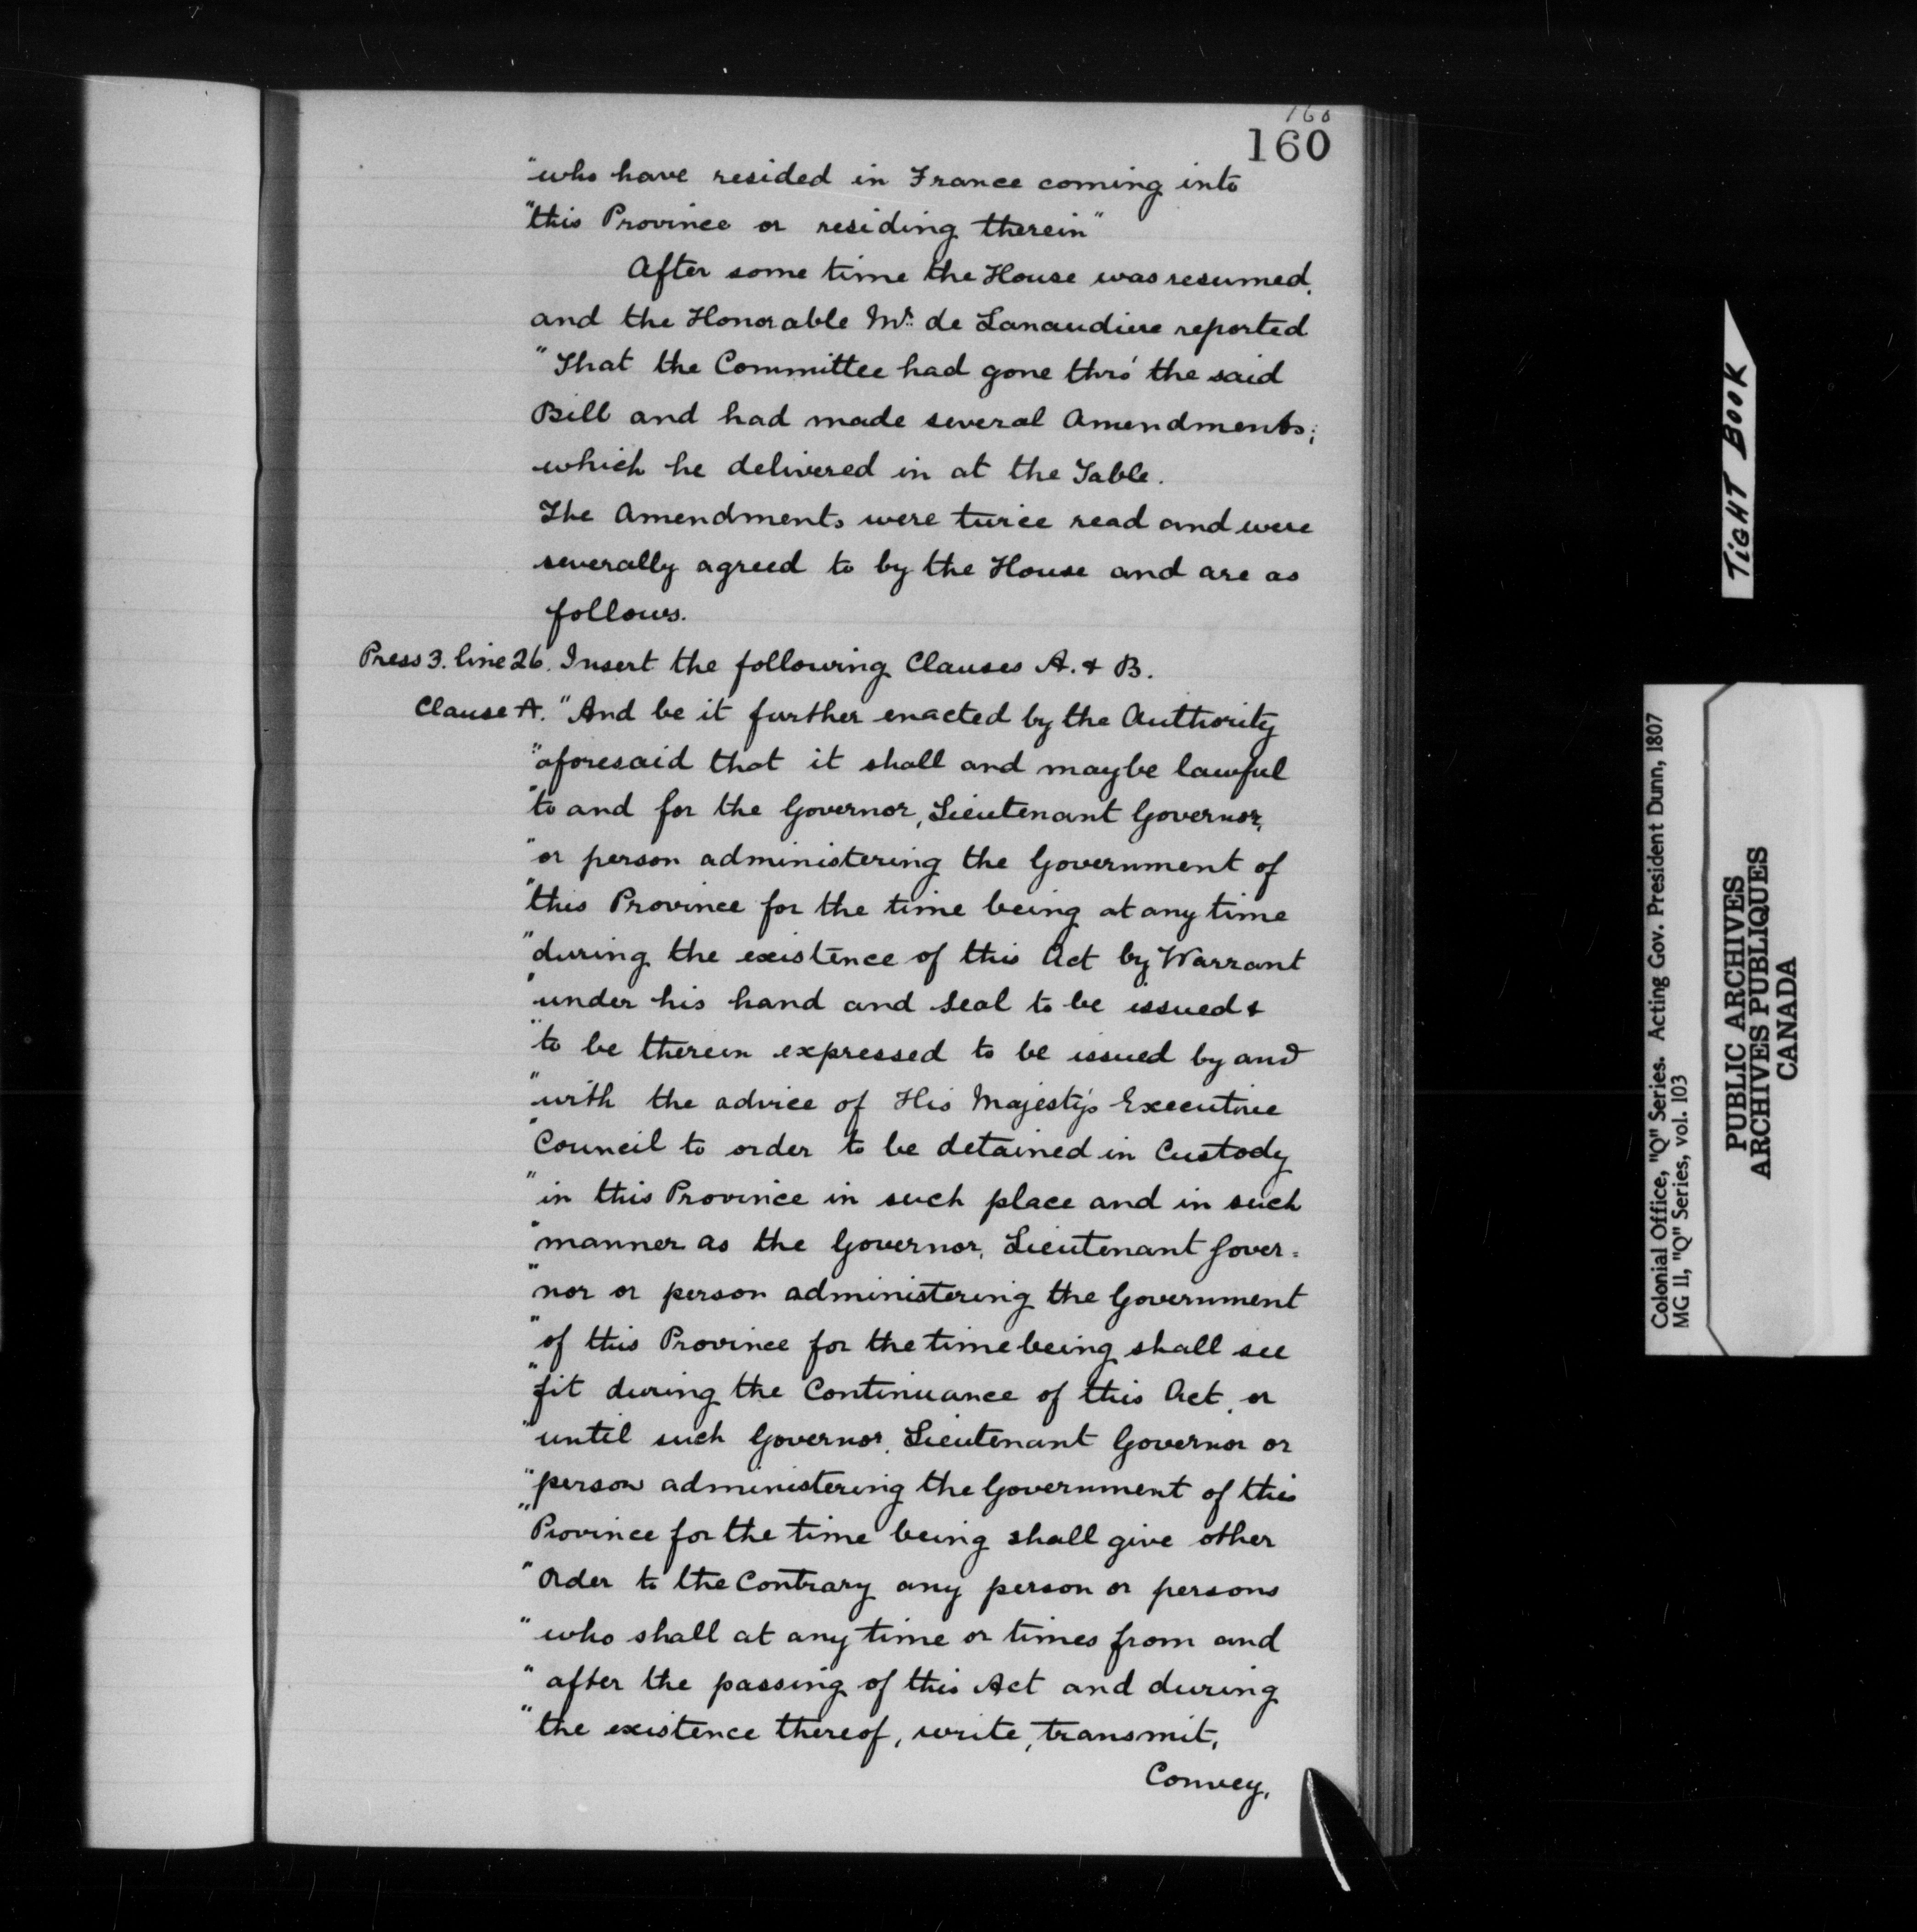 160
160
"who have resided in France coming into
"this Province or residing therein"
After some time the House was resumed,
and the Honorable Mr. de Lanaudiere reported
"That the Committee had gone thro' the said
Bill and had made several Amendments;
which he delivered in at the Table.
The Amendments were twice read and were
severally agreed to by the House and are as
follows.
Press 3. line 26. Insert the following Clauses A. & B.
Clause A. "And be it further enacted by the Authority
"aforesaid that it shall and may be lawful
"to and for the Governor, Lieutenant Governor,
"or person administering the Government of
"this Province for the time being at any time
"during the existence of this Act by Warrant
"under his hand and Seal to be issued &
"to be therein expressed to be issued by and
"with the advice of His Majesty's Executive
"Council to order to be detained in Custody
"in this Province in such place and in such
"manner as the Governor, Lieutenant Gover=
"nor or person administering the Government
"of this Province for the time being shall see
"fit during the Continuance of this Act, or
"until such Governor, Lieutenant Governor or
"person administering the Government of this
"Province for the time being shall give other
"Order to the Contrary any person or persons
"who shall at any time or times from and
"after the passing of this Act and during
"the existence thereof, write, transmit,
Convey,
TIGHT BOOK
Colonial Office, "Q" Series. Acting Gov. President Dunn, 1807
MG 11, "Q" Series, vol. 103
PUBLIC ARCHIVES
ARCHIVES PUBLIQUES
CANADA